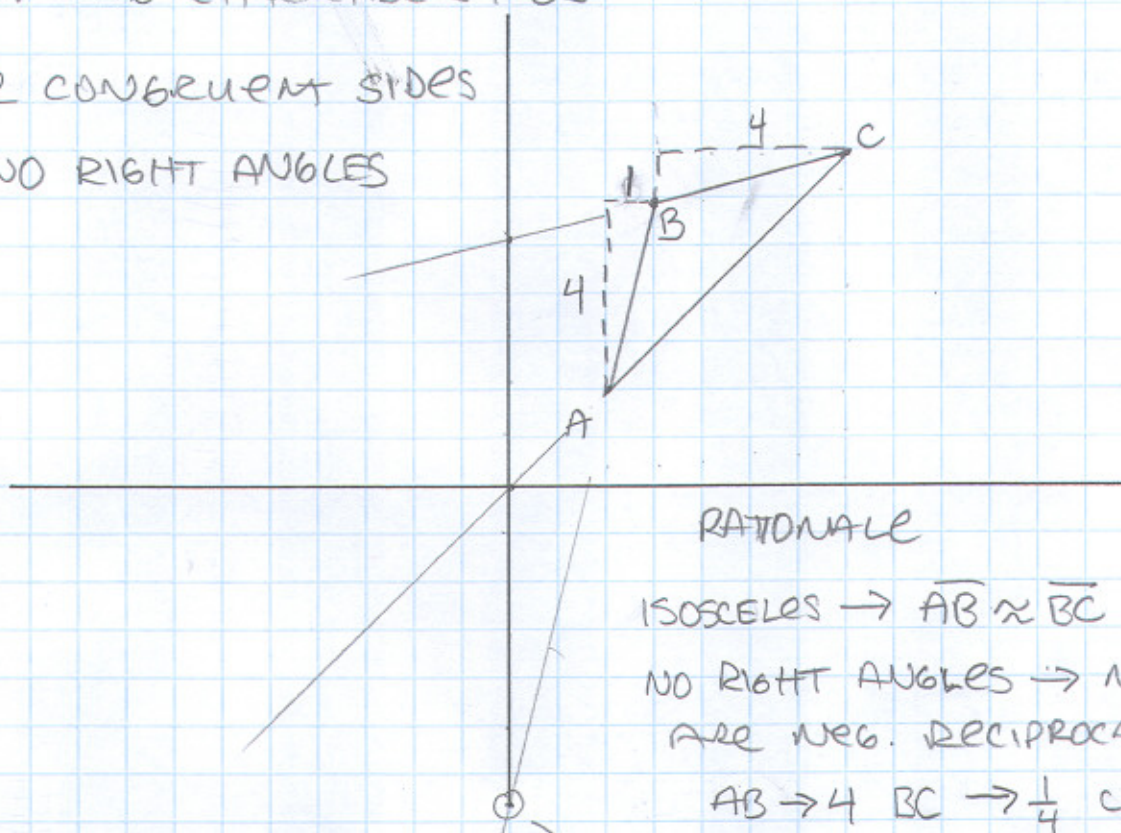 CONGRUENT SIDES
NO RIGHT ANGLES
4
C
1
B
4
A
RATIONALE
ISOSCELES → AB ≈ BC
NO RIGHT ANGLES → N
ARE NEG. RECIPROCA
AB → 4 BC → 1/4 C